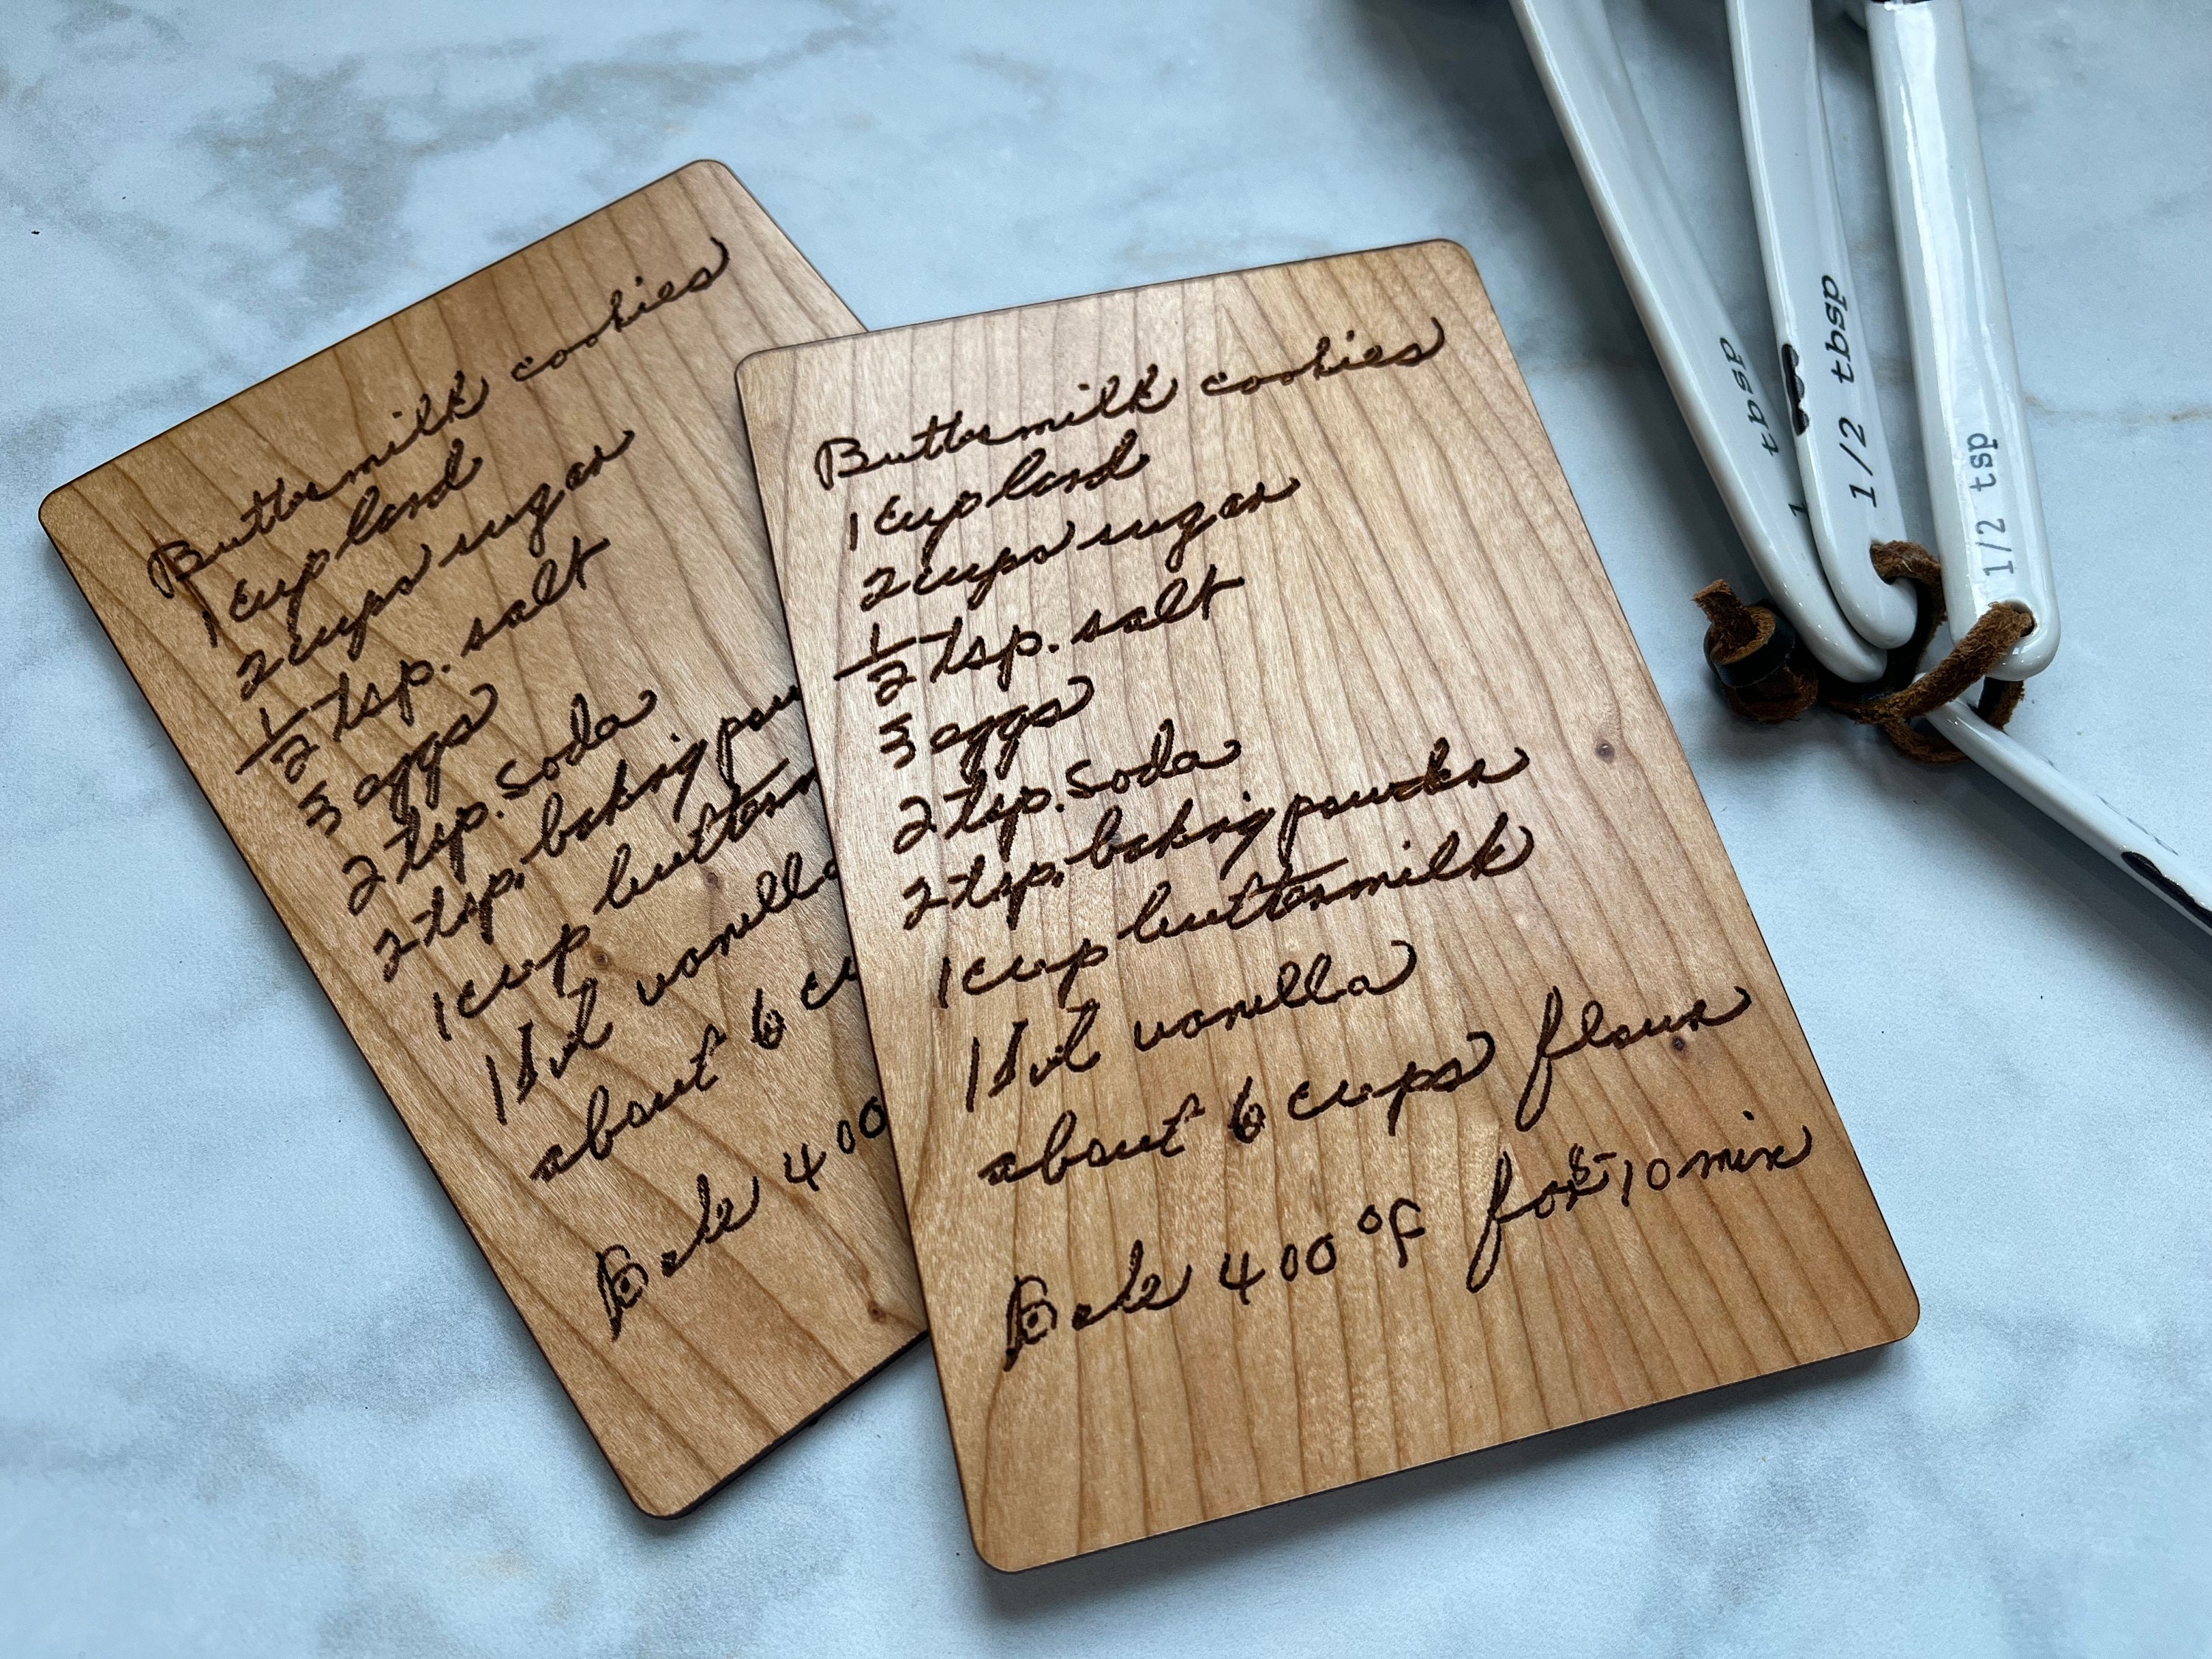 Buttermilk cookies
1 cup lard
2 cups sugar
1/2 tsp. salt
3 eggs
2 tsp. soda
2 tsp. baking pow
1 cup butterm
1 vanilla
about 6 cu
Bake 400
Buttermilk cookies
1 cup lard
2 cups sugar
1/2 tsp. salt
3 eggs
2 tsp. soda
2 tsp. baking powder
1 cup buttermilk
1 vanilla
about 6 cups flour
Bake 400 °F for 8-10 min
1 tbsp
1/2 tbsp
1/2 tsp